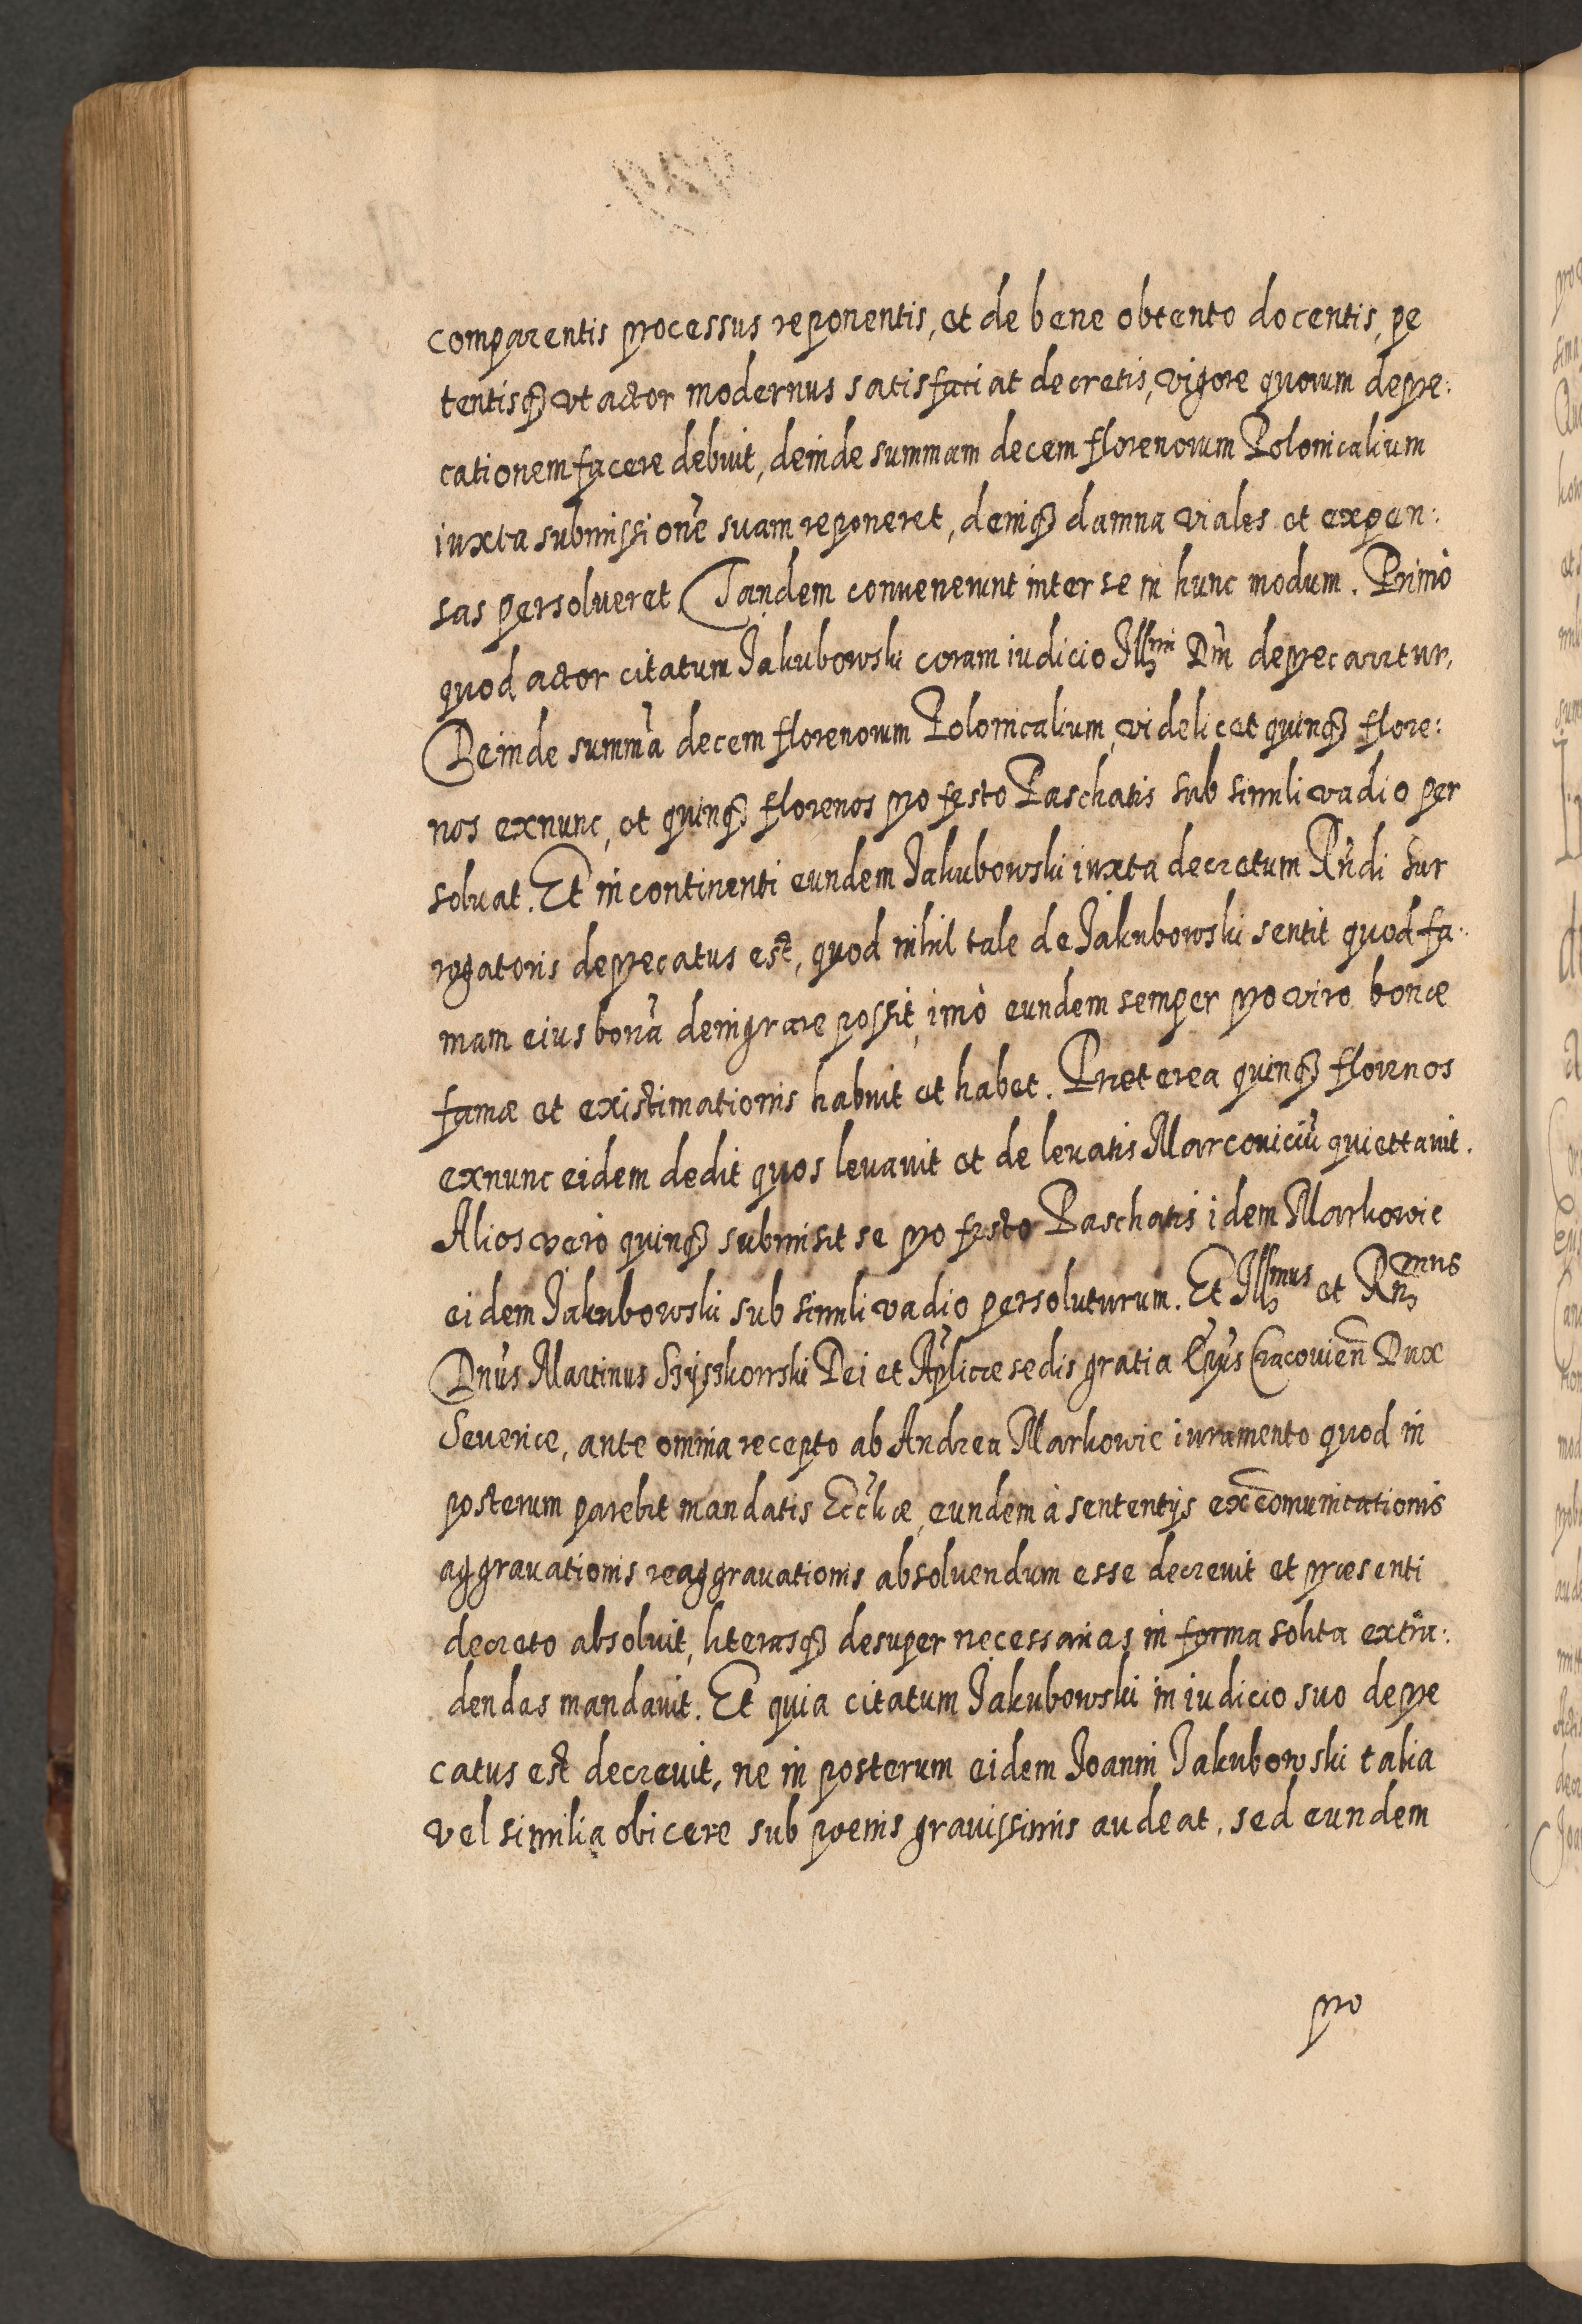 comparentis processus reponentis, et de bene obtento docentis, pe
tentisq₃ vt actor modernus satisfaciat decretis, vigore quorum depre:
cationem facere debuit, deinde summam decem florenorum Polonicalium
iuxta submissionē suam reponeret, deniq₃ damna viales et expen:
sas persolueret. Tandem convenerunt inter se in hunc modum. Primò
quod actor citatum Jakubowski coram iudicio Illmi Dñi deprecaretur,
Deinde summā decem florenorum Polonicalium, videlicet quinq₃ flore:
nos exnunc, et quinq₃ florenos pro festo Paschatis sub simili vadio per
soluat. Et in continenti eundem Jakubowski iuxta decretum Rñdi Sur
rogatoris deprecatus est, quod nihil tale de Jakubowski sentit quod fa:
mam eius bonā denigrare possit, imò eundem semper pro viro bonæ
famæ et existimationis habuit et habet. Præterea quinq₃ florenos
exnunc eidem dedit quos levavit et de levatis Marconiciū quiettavit.
Alios verò quinq₃ submisit se pro festo Paschatis idem Markowic
eidem Jakubowski sub simili vadio persoluturum. Et Illmus et Rñmus
Dnūs Martinus Szyszkowski Dei et Aplicæ sedis gratia Epūs Cracovieñ Dux
Severiæ, ante omnia recepto ab Andrea Markowic iuramento quod in
posterum parebit mandatis Ecclīæ, eundem à sententijs excōmunicationis
aggravationis reaggravationis absoluendum esse decrevit et præsenti
decreto absoluit, literasq₃ desuper necessarias in forma solita extra:
dendas mandavit. Et quia citatum Jakubowski in iudicio suo depre
catus est decrevit, ne in posterum eidem Joanni Jakubowski talia
vel similia obicere sub poenis gravissimis audeat, sed eundem
pro